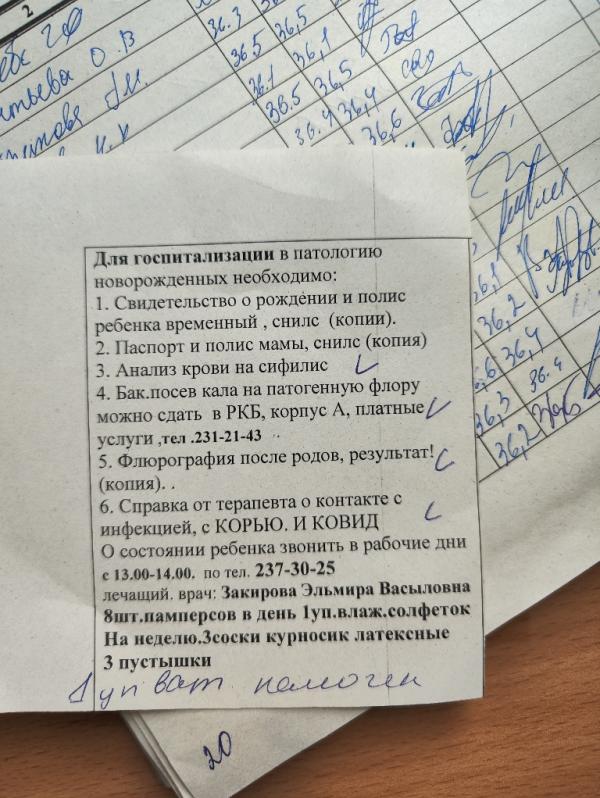 2
36.3 36,5
О. В 36.5 36,1
36.1 36,5
36.5 36,4
36.4 36,6
36,1
36,2
36,4
36.4
36,3
36,2
Для госпитализации в патологию
новорожденных необходимо:
1. Свидетельство о рождении и полис
ребенка временный , снилс (копии).
2. Паспорт и полис мамы, снилс (копия)
3. Анализ крови на сифилис
4. Бак.посев кала на патогенную флору
можно сдать в РКБ, корпус А, платные
услуги ,тел .231-21-43
5. Флюрография после родов, результат!
(копия). .
6. Справка от терапевта о контакте с
инфекцией, с КОРЬЮ. И КОВИД
О состоянии ребенка звонить в рабочие дни
с 13.00-14.00. по тел. 237-30-25
лечащий. врач: Закирова Эльмира Васыловна
8шт.памперсов в день 1уп.влаж.солфеток
На неделю.3соски курносик латексные
3 пустышки
1 уп ват
20